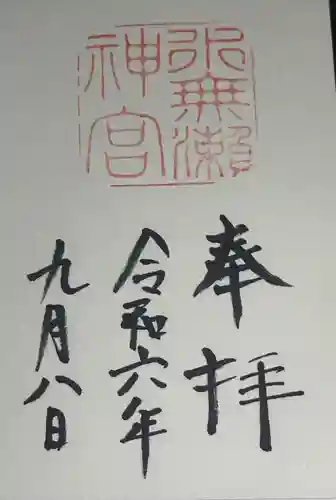 水無瀬
神宮
奉拝
令和六年
九月八日